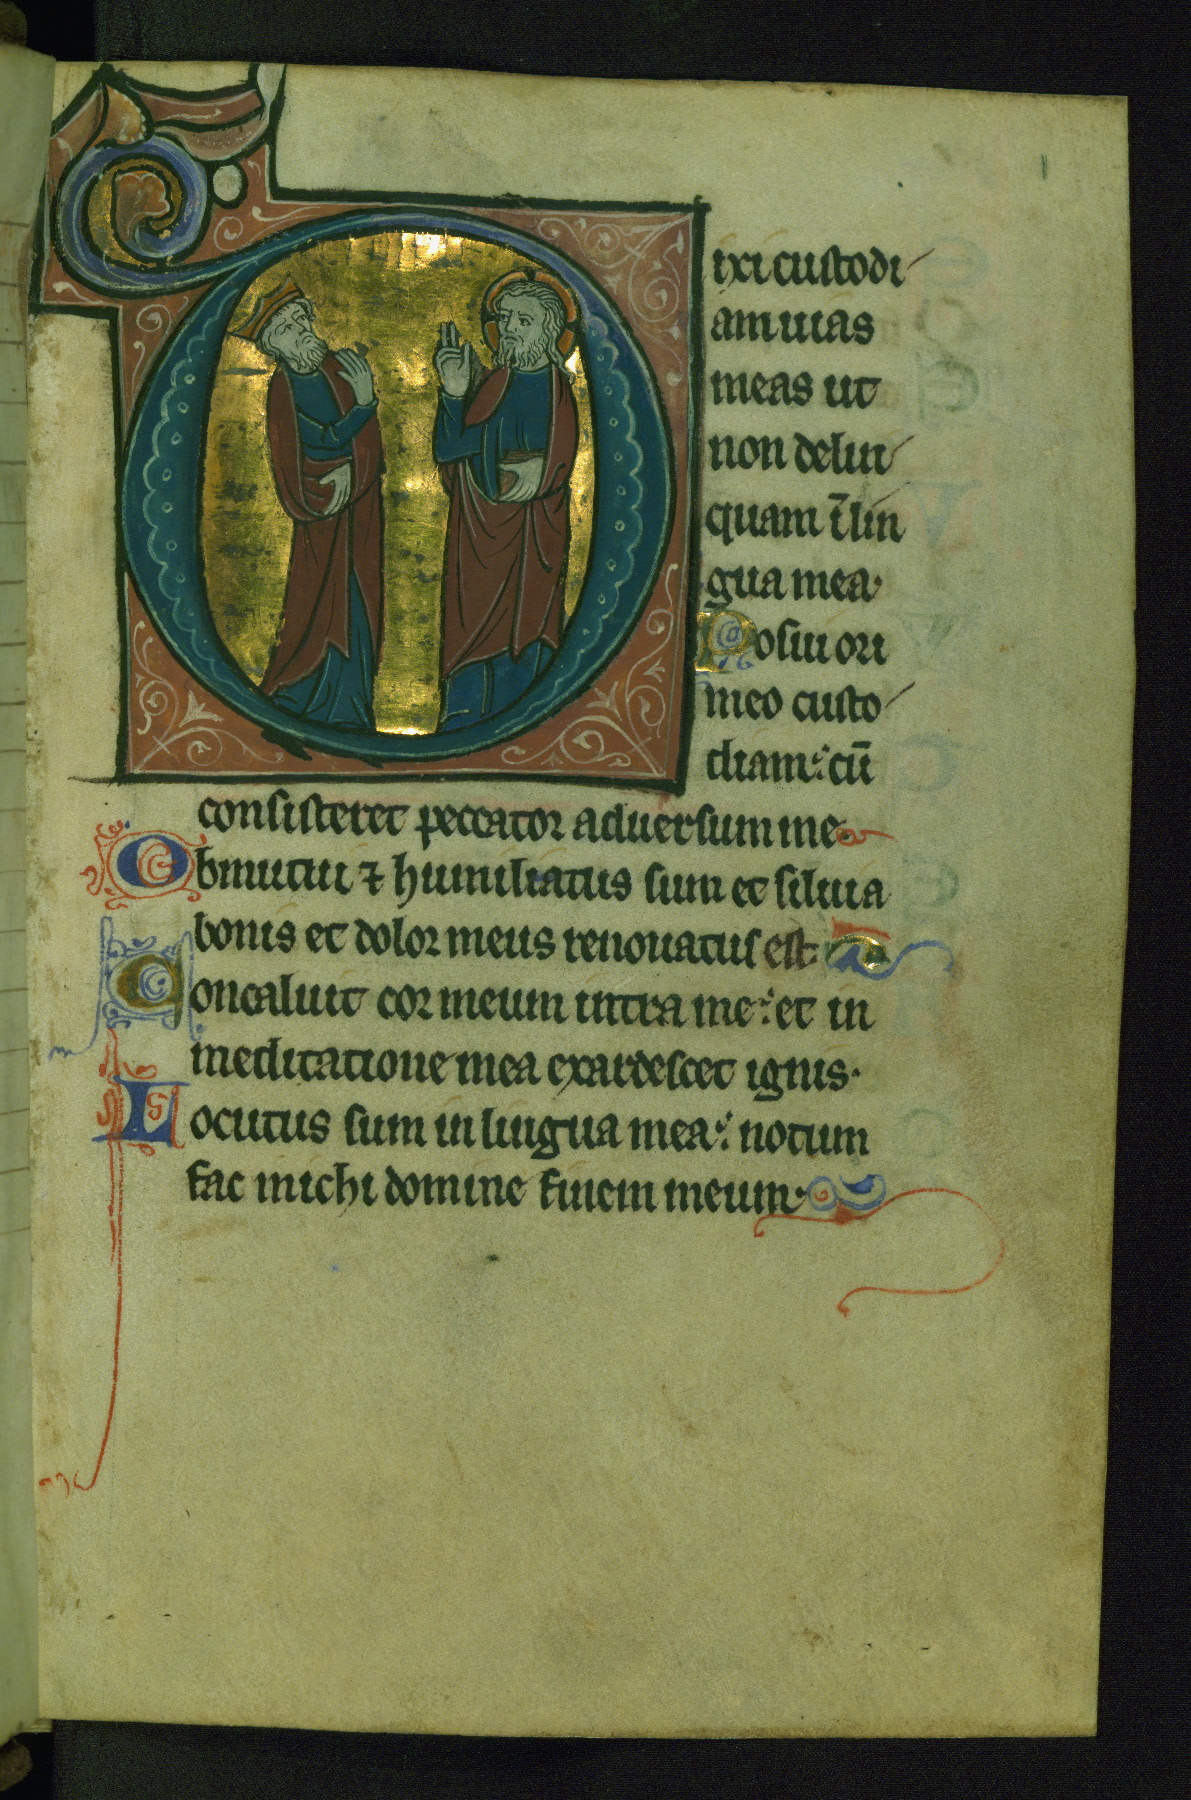 Dixi custodi
am uias
meas ut
non delin
quam ī lin
gua mea·
Posui ori
meo custo
diam: cū
consisteret peccator aduersum me·
Obmutui ⁊ humiliatus sum et silui a
bonis et dolor meus renouatus est
Concaluit cor meum intra me: et in
meditatione mea exardescet ignis·
Locutus sum in lingua mea: notum
fac michi domine finem meum·